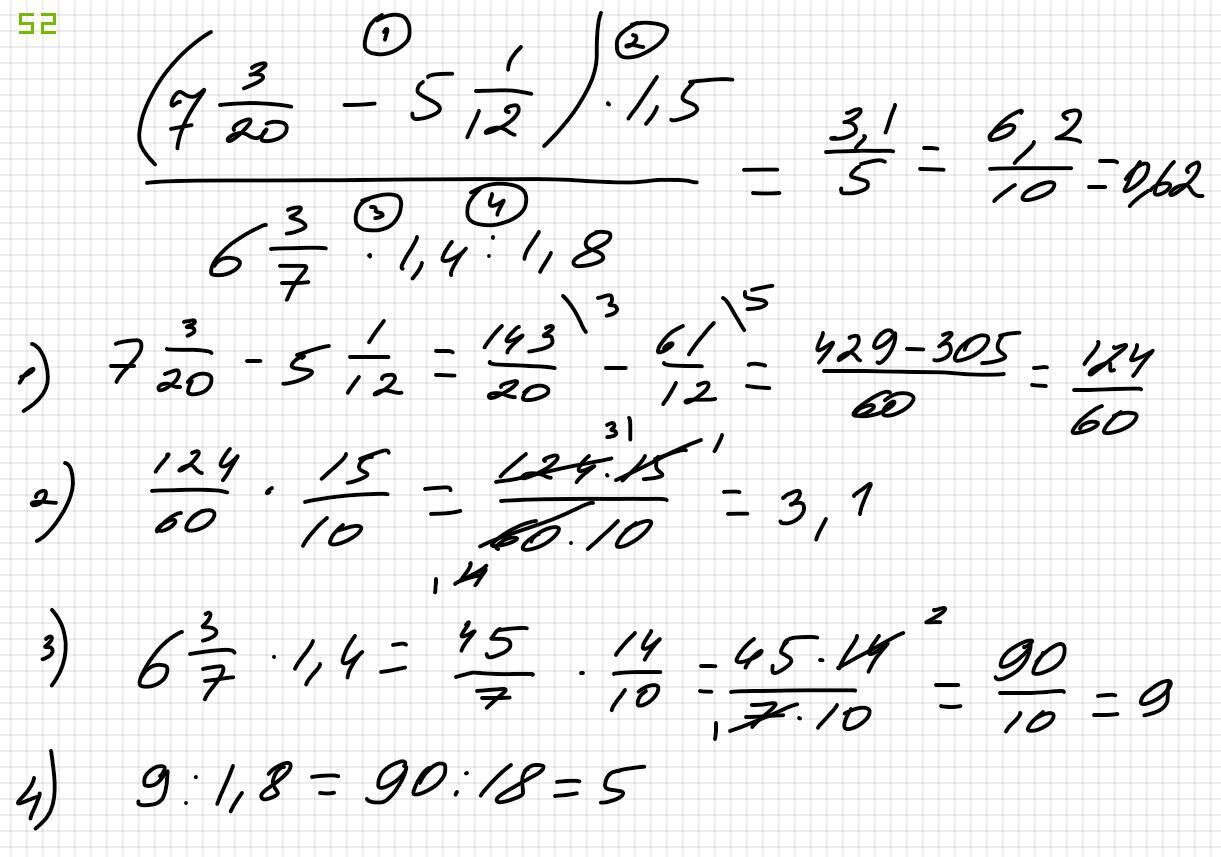 52
(7 3/20 - 5 1/12) · 1,5 ① ②
6 3/7 · 1,4 : 1,8 ③ ④
= 3,1/5 = 6,2/10 = 0,62
1) 7 3/20 - 5 1/12 = 143/20 \3 - 61/12 \5 = 429-305/60 = 124/60
2) 124/60 · 15/10 = 124·15/60·10 31 1 1 4 = 3,1
3) 6 3/7 · 1,4 = 45/7 · 14/10 = 45·14/7·10 2 1 = 90/10 = 9
4) 9 : 1,8 = 90 : 18 = 5